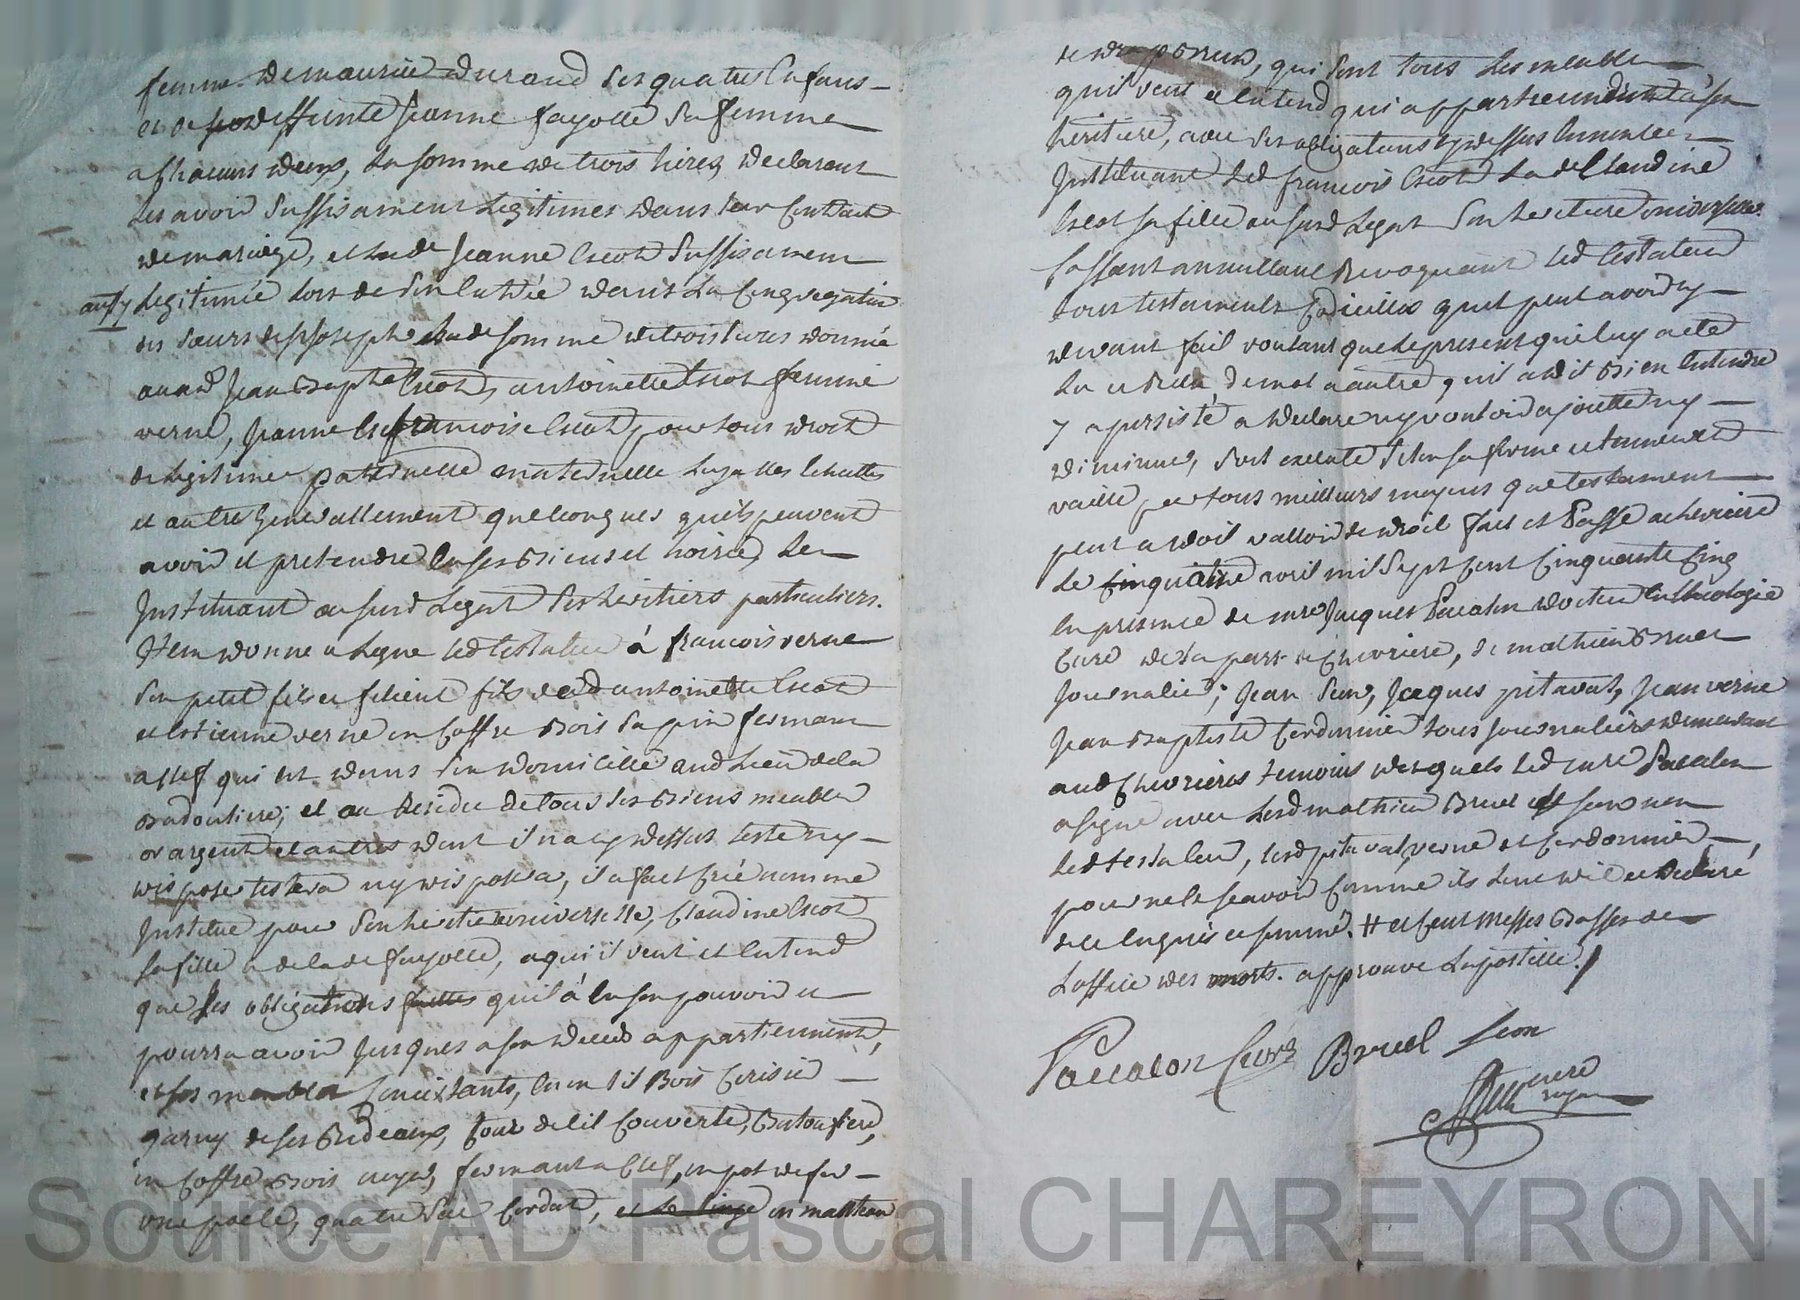 femme de maurice durand ses quatre enfans
et de deffunte jeanne fayolle sa femme
a chacuns deux, la somme de trois livres declarant
les avoir suffisament legitimés dans leur contract
de mariage, et lade jeanne Creot suffisament
aussy legitimée lors de son entrée dans la Congregation
des sœurs de st joseph lade somme de trois livres donnée
auxd jean Baptte Creot, antoinette Creot femme
verne, jeanne et francoise Creot, pour tous droit
de legitime paternelle maternelle
et autre generallement quelconques quils peuvent
avoir et pretendre en ses biens et hoirie, les
Instituant au susd legat ses heritiers particuliers.
Item donne a legue led testateur à francois verne
son petit fils et filieul fils de lad antoinette Creot
et estienne verne un Coffre bois sapin fermant
a clef qui est dans son domicille aud lieu de la
badouliere; et au residu de tous ses biens meubles
or argent et autres dont il na cy dessus testé ny
disposé testera ny disposera, il a fait créé nommé
Institué pour son heritiere universelle, Claudine Creot
sa fille a de lade fayolle, a qui il veut et entend
que les obligations quil à en son pouvoir et
pourra avoir jusques a son deceds appartiennent,
et ses meubles Concistants, en un lit Bois Cerisier
garny de ses rideaux, tour de lit couverte,
un Coffre bois noyer, fermant a Clef, un pot de fer
une poele, quatre sac Cordat, et le linge un manteau
de drap brun, qui sont tous les meubles
quil veut et entend qui appartiendront à son
heritiere, avec les obligations cy dessus enoncées
Instituant led francois Creot lade Claudine
Creot sa fille au susd legat son heritiere universelle.
Cassant annullant revoquant led testateur
tous testaments Codicilles quil peut avoir cy
devant fait voulant que le present qui luy a eté
lu et relu de mot a autre, quil a dit bien entendre
y a persisté a declaré ny vouloir ajoutter ny
diminuer, sort execute selon sa forme et teneur et
vaille par tous meilleurs moyens que testament
peut a doit valloir de droit fait et Passé a chevriere
le cinq avril mil sept cent cinquante cinq
en presence de mre jacques Pacalon docteur en theologie
Curé de la parr. de chevriere, de mathieu bruel
journalier; jean seon, jacques pitaval, jean verne
jean baptiste Cordonnier tous journaliers demeurant
aud Chevrieres temoins desquels led curé Pacalon
a signé avec lesd mathieu bruel et seon non
led testateur, lesd pitaval, verne et Cordonnier,
pour ne le scavoir comme ils lont dit et declaré
de ce enquis et sommé. # et Cent messes basses de
l'office des morts. approuve la postille.
Paccalon Curé Bruel Seon